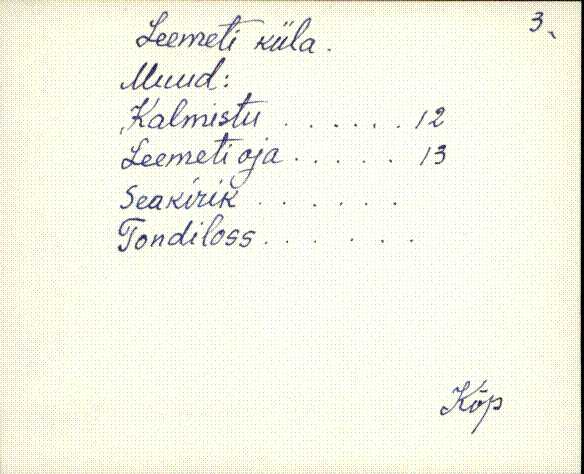 3.
Leemeti küla.
Muud:
Kalmistu ...... 12
Leemeti oja ...... 13
Seakirik .......
Tondiloss .......
Kõp